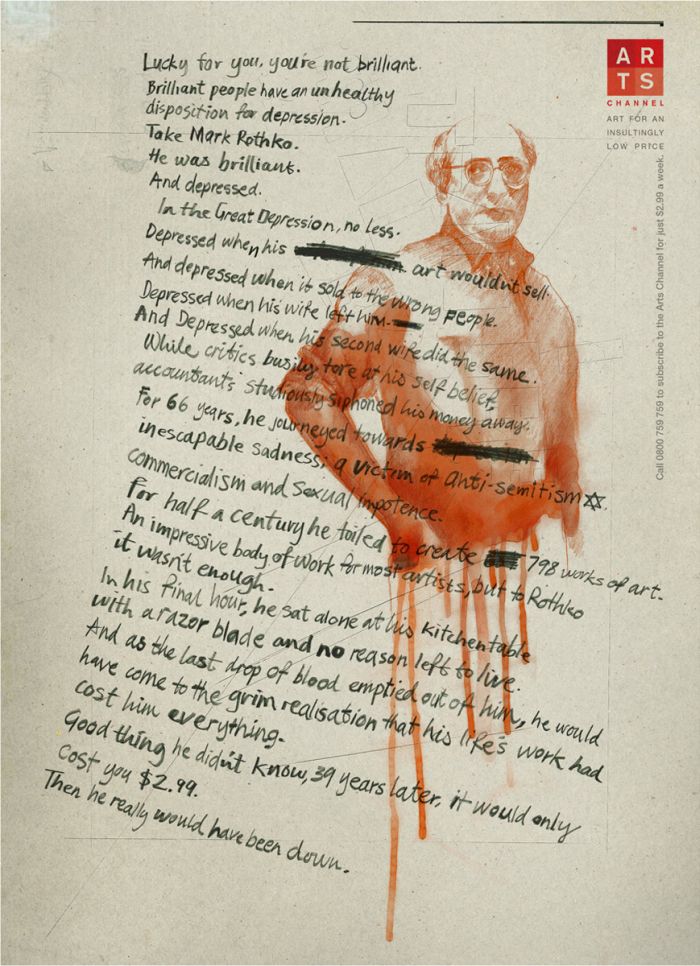 Lucky for you, you're not brilliant.
Brilliant people have an unhealthy
disposition for depression.
Take Mark Rothko.
He was brilliant.
And depressed.
In the Great Depression, no less.
Depressed when his art wouldn't sell.
And depressed when it sold to the wrong people.
Depressed when his wife left him.
And Depressed when his second wife did the same.
While critics busily tore at his self belief,
accountants studiously siphoned his money away.
For 66 years, he journeyed towards
inescapable sadness; a victim of anti-semitism ✡,
commercialism and sexual impotence.
For half a century he toiled to create 798 works of art.
An impressive body of work for most artists, but to Rothko
it wasn't enough.
In his final hour, he sat alone at his kitchen table
with a razor blade and no reason left to live.
And as the last drop of blood emptied out of him, he would
have come to the grim realisation that his life's work had
cost him everything.
Good thing he didn't know, 39 years later, it would only
cost you $2.99.
Then he really would have been down.
AR
TS
CHANNEL
ART FOR AN
INSULTINGLY
LOW PRICE
Call 0800 759 759 to subscribe to the Arts Channel for just $2.99 a week.